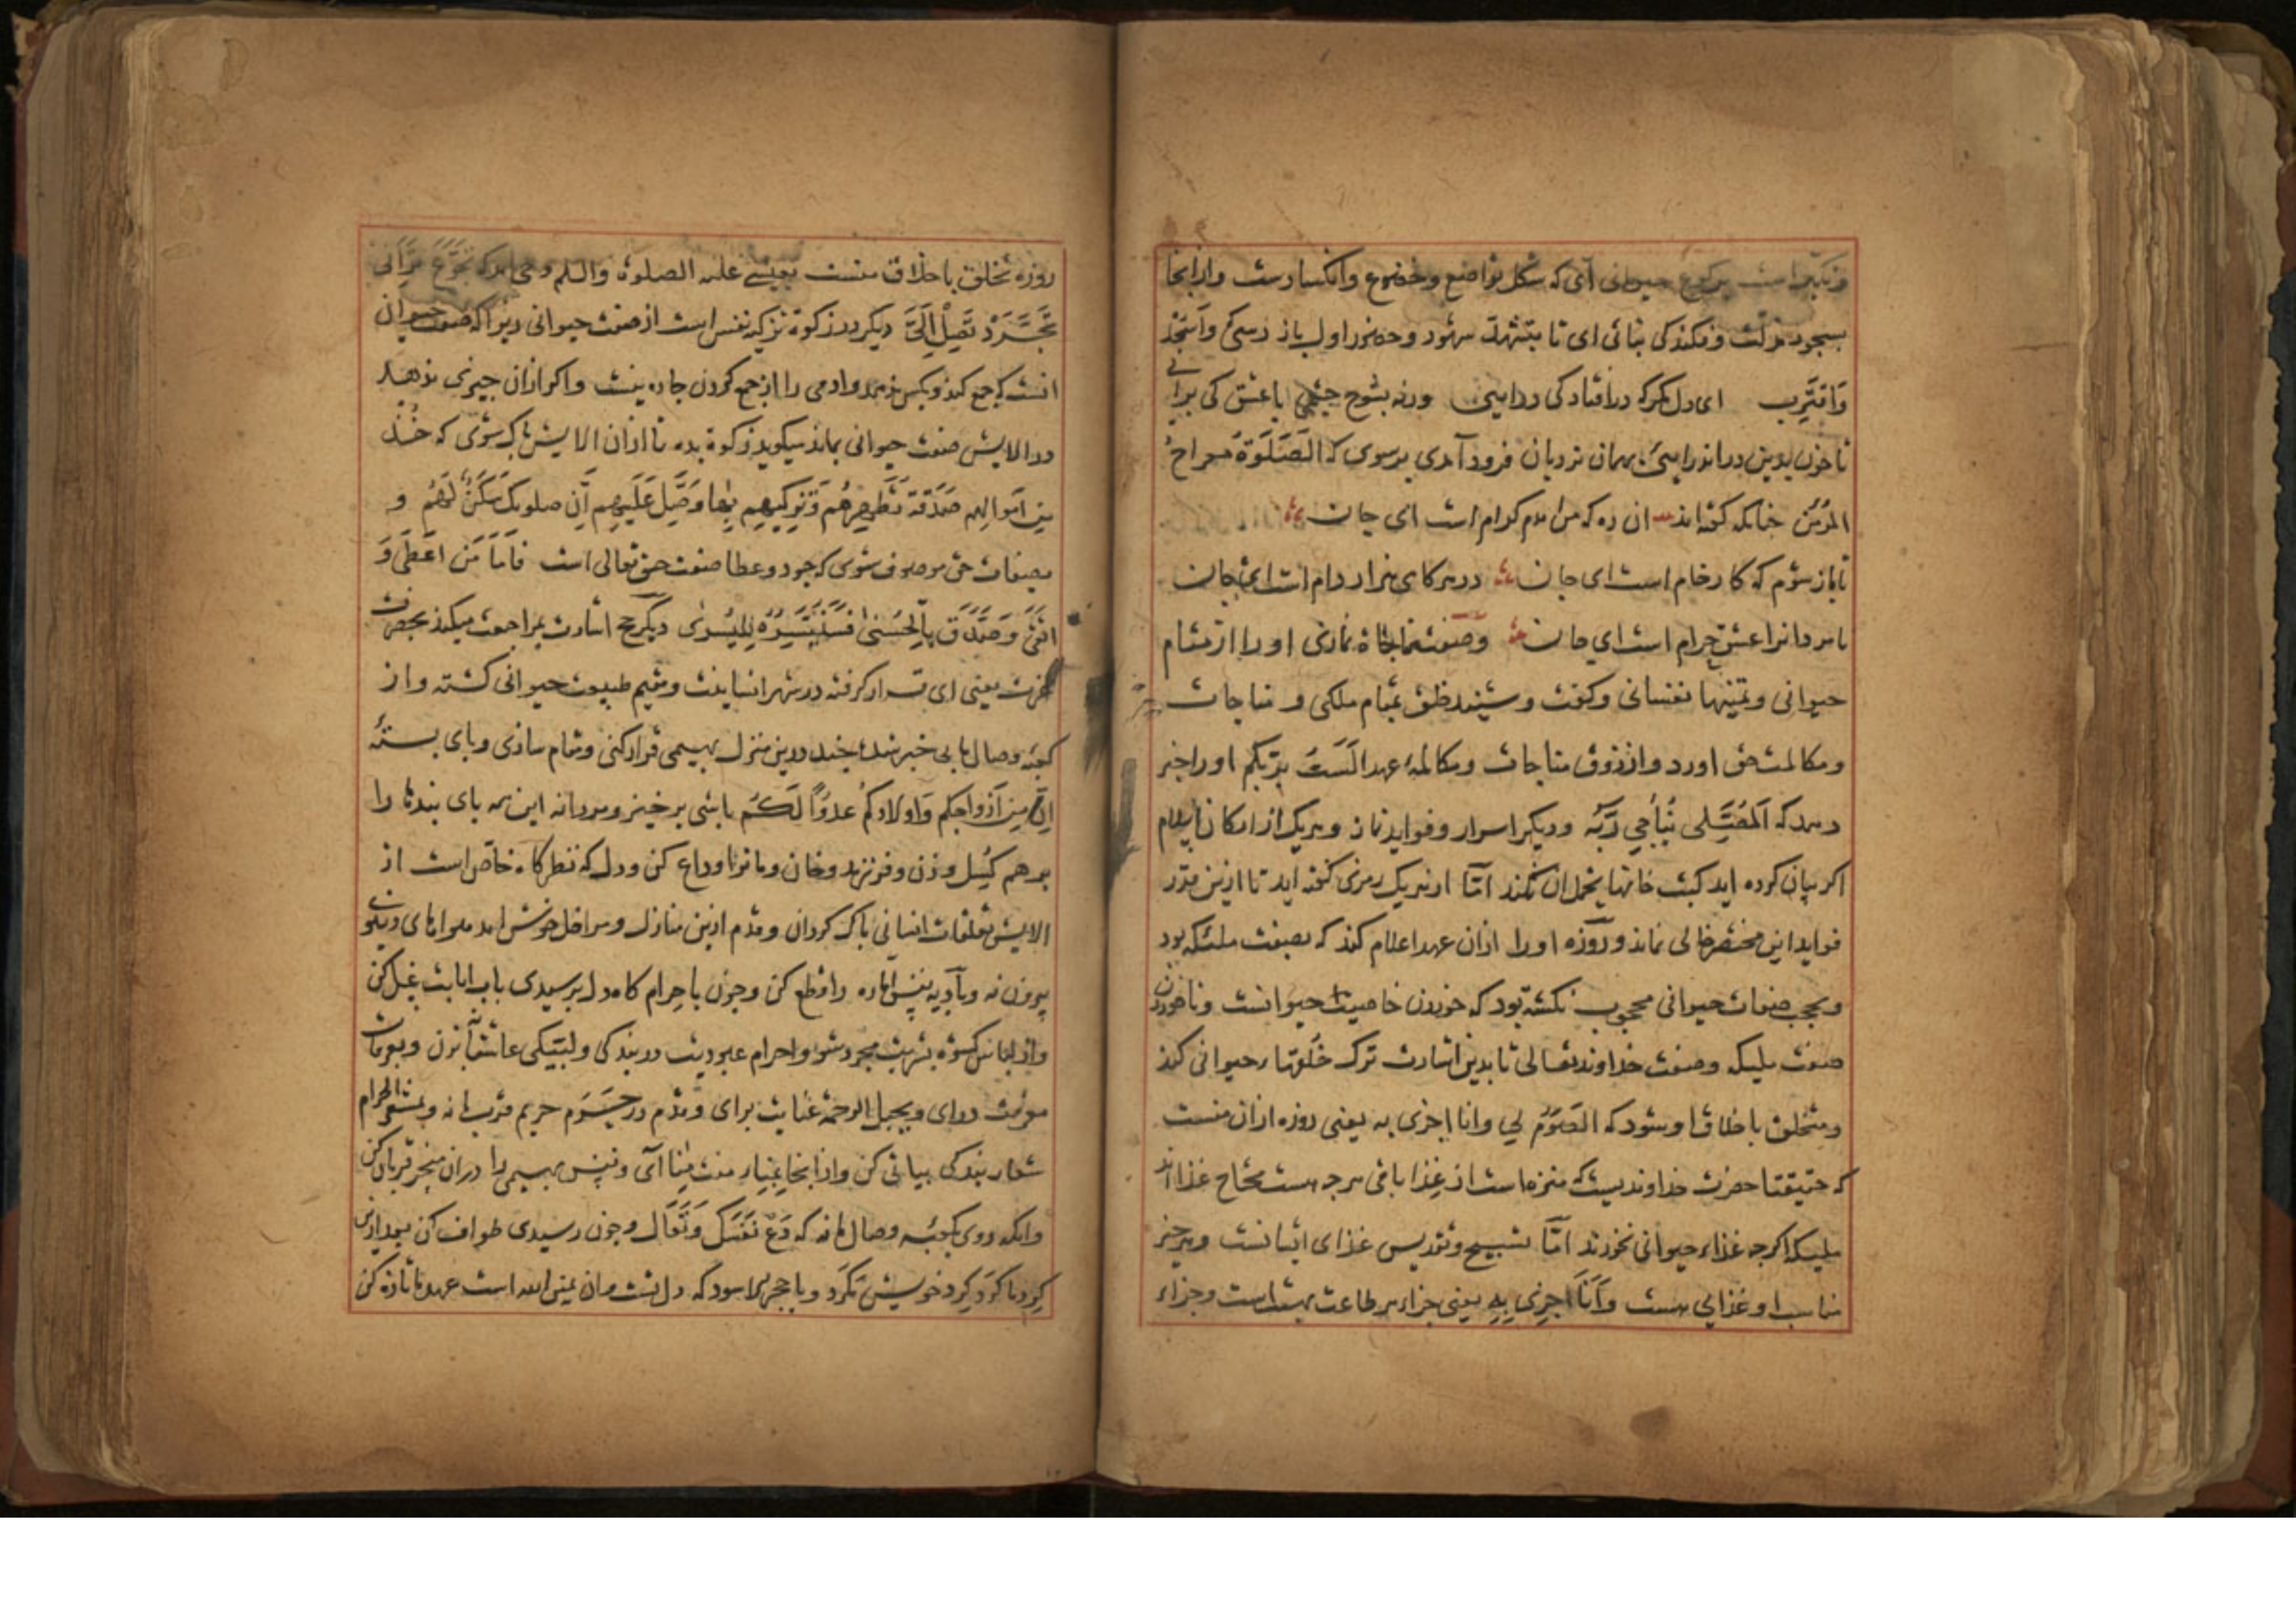 و تکبر است برکوع حیوانی آی که شکل تواضع و خضوع وانکسارست وازانجا
بسجود مذلت وفکندکی نباتی ای تا بتشهد شهود و حضور اول باز رسی که وَاسْجُدْ
وَاقتَرِب ای دل مکر که درافتادکی درایی ورنه بشوخ چشمی باعشق کی برائی
تا جون بدین در اندر ایی بهمان نردبان فرود آمدی برسوی که الصَّلَوةُ معراج
المؤمن جنانکه کفته اند ان ره که من امدم کدام است ای جان
تا باز شوم که کار خام است ای جان در هر کامی هزار دام است ای جان
نامردانرا عشق حرام است ای جان وصفت مناجاة نمازی اورا از مقام
حیوانی و تمنیها نفسانی وکفت وشنید خلق بمقام ملکی و مناجات
و مکالمت حق اورد واز ذوق مناجات ومکالمۀ عهد اَلَستُ بِرَبِّکم اورا خبر
دهد که اَلمُصَلِّی یُنَاجِی رَبَّه ودیکر اسرار وفواید نماز وهریک از ارکان اسلام
اکر بیان کرده اید کتب خانها تحمل ان نکند امّا از هریک رمزی کفته اید تا ازین قدر
فواید این مختصر خالی نماند و روزه اورا ازان عهد اعلام کند که بصفت ملئکه بود
و بحجب صفات حیوانی محجوب نکشته بود که خوردن خاصیت حیوانست و ناخوردن
صفت ملیکه وصفت خداوند تعالی تا بدین اشارت ترک خُلقهاء حیوانی کند
ومتخلق باخلاق او شود که الصَوم لی وانا اجزی به یعنی روزه ازان منست
که حقیقتا حضرت خداوندیست که منزه است از غِذا باقی هرجه هست محتاج غذا اند
ملیکه اکرجه غذاء حیوانی نخورند امّا تسبیح و تقدیس غذای ایشانست وهر جیز
مناسب او غذایی هست وَاَنَا اجزِی بِهِ یعنی جزاء هر طاعت بهشت است وجزاء
روزه تخلق باخلاق منست بعیسی علیه الصلوة والسلم وحی امد که تَجَوَّع تَرَانِی
تَجَرَّدْ تَصِلْ اِلَیَّ دیکر در زکوة تزکیه نفس است از صفت حیوانی زیرا که صفت حیوان
انست که جمع کند و بکس ندهد وادمی را از جمع کردن جاره نیست واکر ازان جیزی ندهد
در الایش صفت حیوانی بماند میکوید زکوة بده تا ازان الایش پاک شوی که خُذ
مِن اَموالِهِم صَدَقَة تُطَهِرُهُم وَتُزَکِّیهِم بِهَا وَصَلِّ عَلَیهِم اِنّ صلوتک سَکَنٌ لَهُم و
بصفات حق موصوف شوی که جود وعطا صفت حق تعالی است فَاَمَّا مَن اَعطَی وَ
اتَّقَی وَصَدَّقَ بِالحُسنی فَسَنُیَسِّرُهُ لِلیُسرَی دیکر حج اشارت بمراجعت میکند بحضرت
عزت یعنی ای قرار کرفته در شهر انسانیت و مقیم طبیعت حیوانی کشته و از
کعبه وصال ما بی خبر شدۀ جند درین منزل بهیمی قرار کنی ومقام سازی و پای بستۀ
اِنَّ مِن اَزواجکم وَاَولادکُم عَدُوًّا لَکُم باشی برخیز ومردانه این همه پای بندها را
برهم کسل و زن وفرزند و خان ومانرا وداع کن ودل که نظرکاه خاص است از
الایش تعلقات انسانی پاک کردان وقدم ازین منازل ومراحل خوش امد هواهای دنیوی
بیرون نه وبادیه نفس اماره را قطع کن وجون باحرام کاه دل برسیدی باب انابت غسل کن
و از لباس کسوه بشریت مجرد شو و احرام عبودیت دربند و لبیکی عاشقانه بزن وبعرفات
معرفت درای وبجبل الرحمة عنایت برای وقدم در حَرَم حریم قرب ما نه وبمشعر الحرام
شعار بندکی ثباتی کن واز انجا بمنا منیت مِنا آی ونفس بهیمی را دران منحر قربان کن
وانکه روی بکعبه وصال ما نه که دَعْ نَفْسَکَ وَتَعَالَ وجون رسیدی طواف کن یعد ازین
کرد ما کرد کرد خویش مکرد وباحجر الاسود که دل تست ومان یمین الله است عهد ما تازه کن